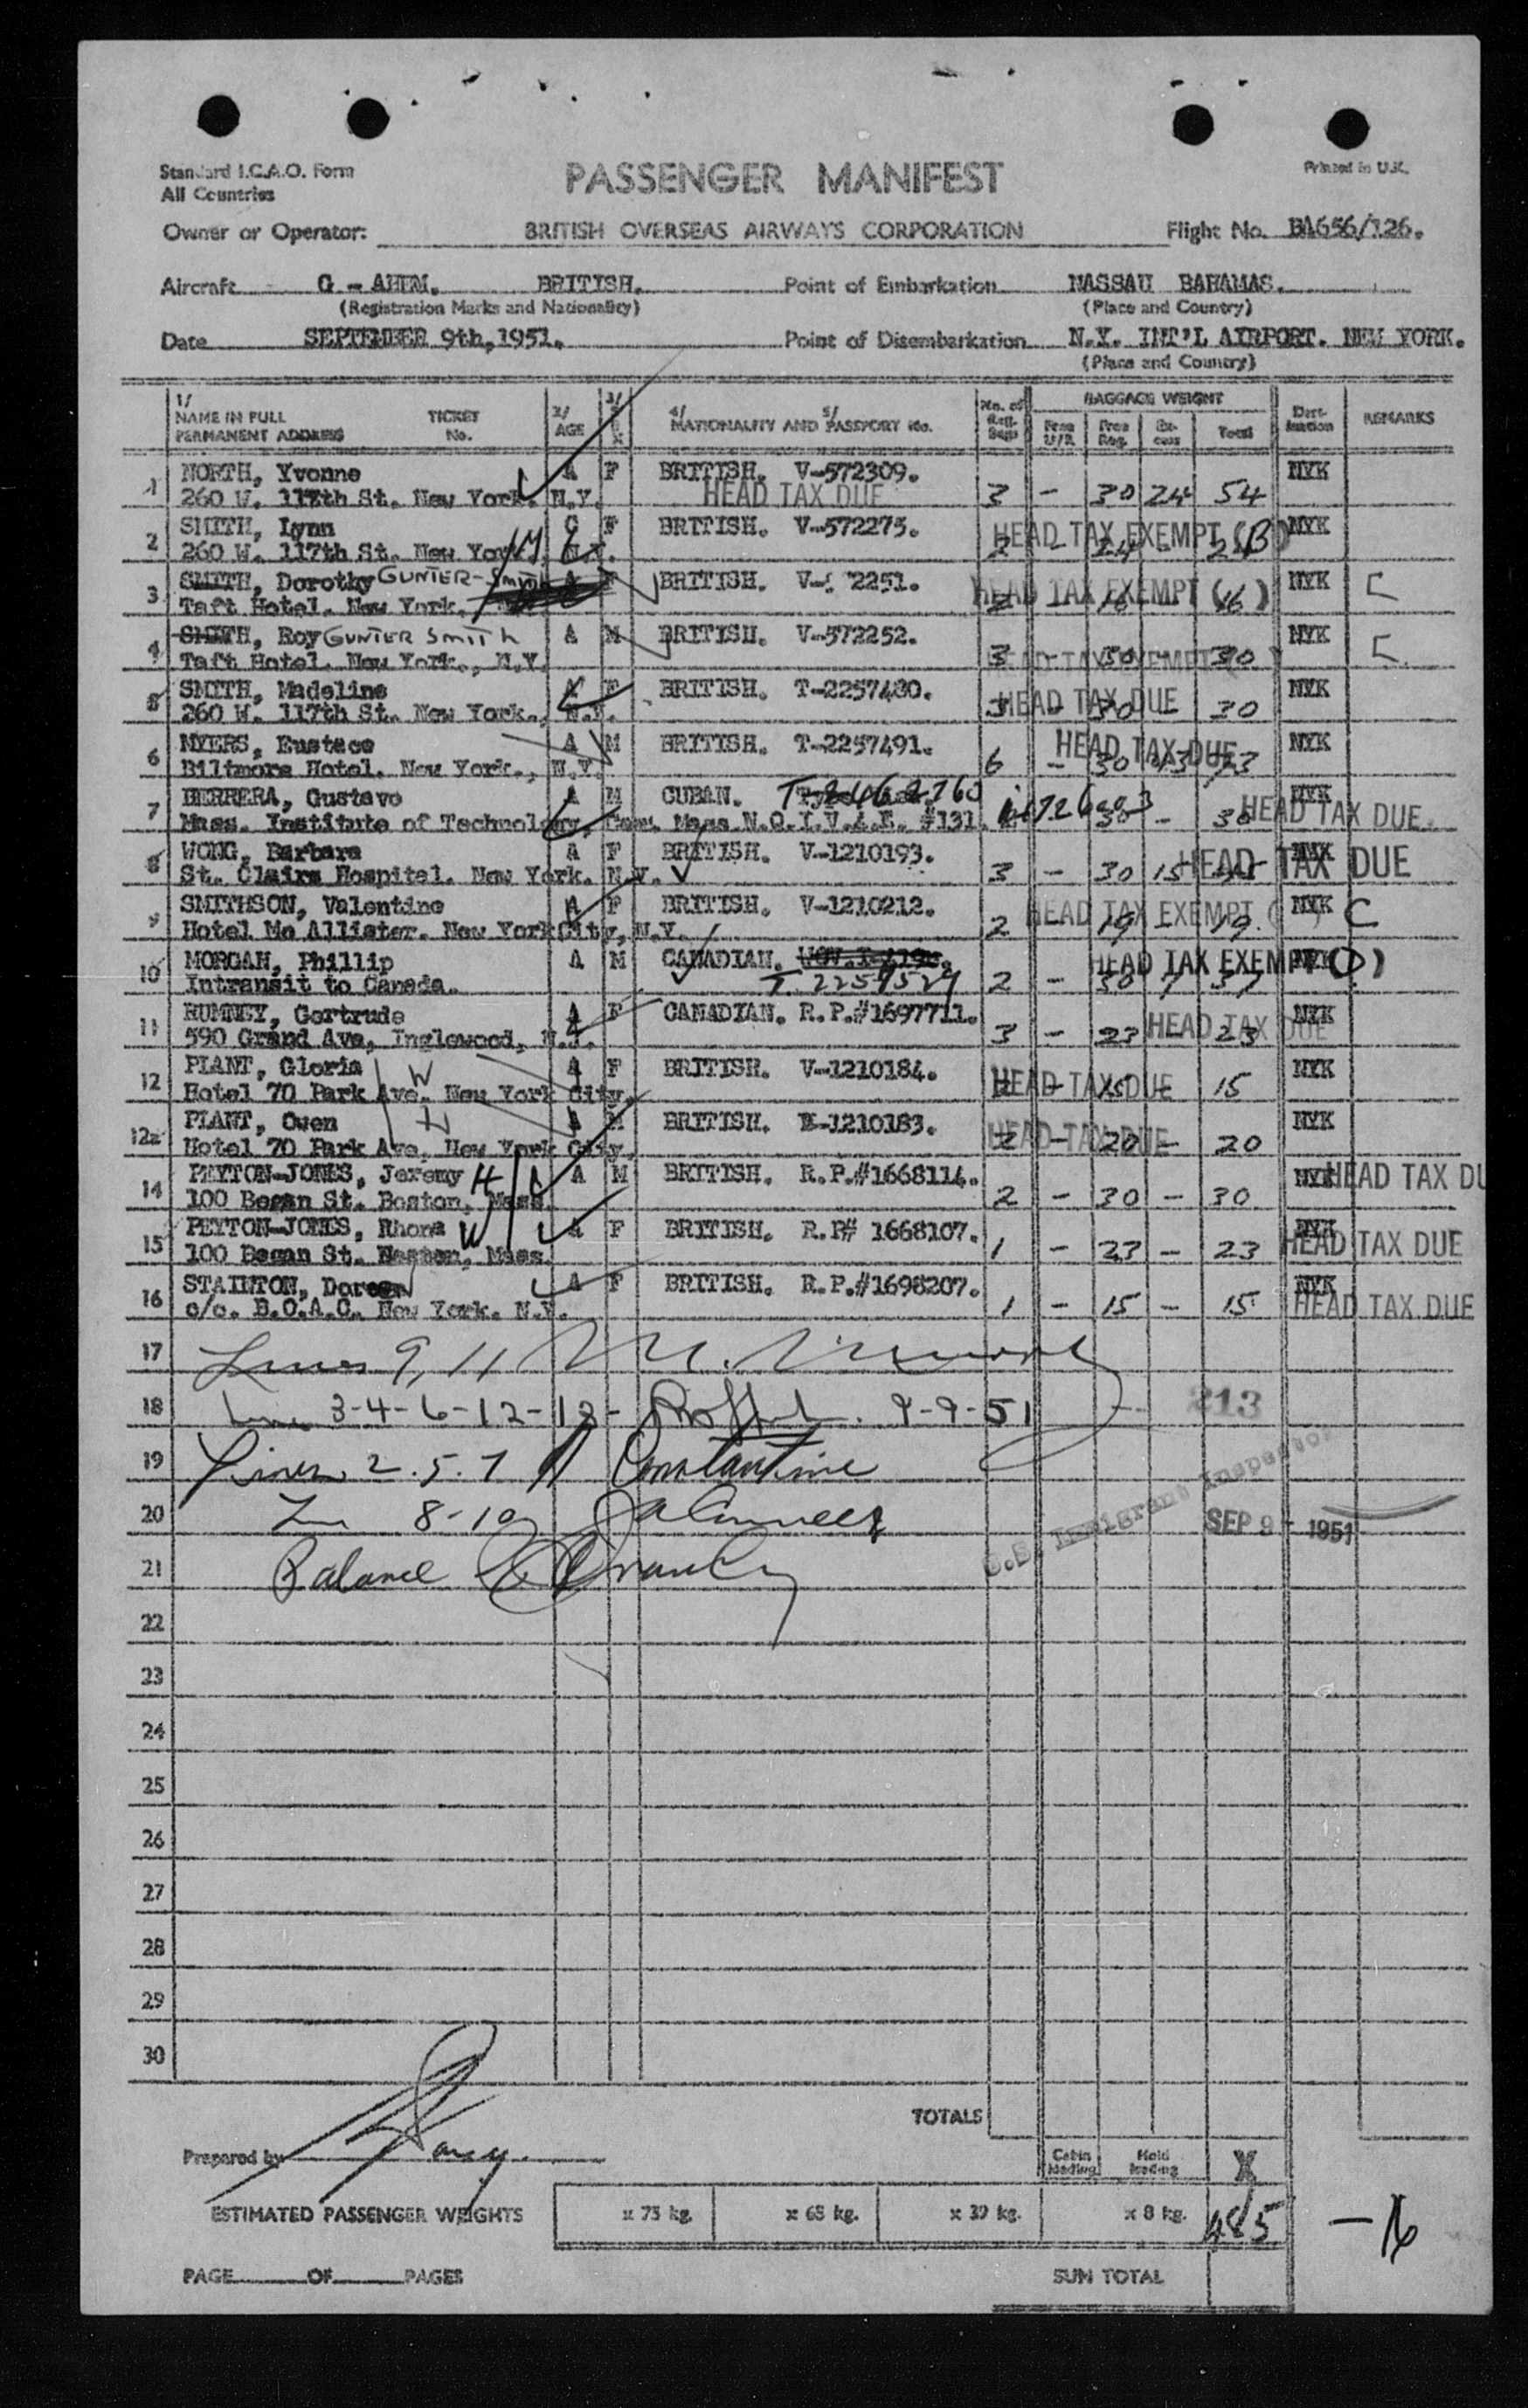 Standard I.C.A.O. Form
All Countries
PASSENGER MANIFEST
Printed in U.K.
Owner or Operator: BRITISH OVERSEAS AIRWAYS CORPORATION Flight No. BA656/126.
Aircraft G - AHEM. BRITISH. Point of Embarkation NASSAU BAHAMAS.
(Registration Marks and Nationality) (Place and Country)
Date SEPTEMBER 9th, 1951. Point of Disembarkation N.Y. INT'L AIRPORT. NEW YORK.
(Place and Country)
1/ NAME IN FULL PERMANENT ADDRESS TICKET No. 2/ AGE 3/ SEX 4/ NATIONALITY AND 5/ PASSPORT No. No. of BAGGAGE WEIGHT Free U/R Free Reg. Ex-cess Total Dest-ination REMARKS
1 NORTH, Yvonne A F BRITISH. V-572309. NYK
260 W. 117th St. New York. N.Y. HEAD TAX DUE 3 - 30 24 54
2 SMITH, Lynn C F BRITISH. V-572275. HEAD TAX EXEMPT (B) NYK
260 W. 117th St. New York, N.Y. 2 - 24 - 24
3 SMITH, Dorothy GUNTER-Smith A F BRITISH. V- 2251. HEAD TAX EXEMPT (16) NYK C
Taft Hotel. New York.
4 SMITH, Roy GUNTER SMITH A M BRITISH. V-572252. NYK C
Taft Hotel. New York., N.Y. 3 HEAD TAX EXEMPT 30 30
5 SMITH, Madeline A F BRITISH. T-2257480. NYK
260 W. 117th St. New York., N.Y. HEAD TAX DUE 30 30
6 MYERS, Eustace A M BRITISH. T-2257491. HEAD TAX DUE NYK
Biltmore Hotel. New York., N.Y. 6 - 30 43 73
7 HERRERA, Gustavo A M CUBAN. T-2462760 NYK
Mass. Institute of Technology, Mass N.Q.I.V.A.E. #131. 30 - 30 HEAD TAX DUE
8 WONG, Barbara A F BRITISH. V-1210193. NYK HEAD TAX DUE
St. Claire Hospital. New York. N.Y. 3 - 30 15 45
9 SMITHSON, Valentine A F BRITISH. V-1210212. HEAD TAX EXEMPT ( ) NYK C
Hotel Mc Allister. New York City, N.Y. 2 19 19
10 MORGAN, Phillip A M CANADIAN. HEAD TAX EXEMPT (D) NYK
Intransit to Canada. T. 2257527 2 - 30 7 37
11 RUMNEY, Gertrude A F CANADIAN. R.P.#1697711. NYK
590 Grand Ave, Inglewood, N.J. 3 - 23 23 HEAD TAX DUE
12 PLANT, Gloria W A F BRITISH. V-1210184. NYK
Hotel 70 Park Ave. New York City. HEAD TAX DUE 15 15
12a PLANT, Owen H A M BRITISH. E-1210183. NYK
Hotel 70 Park Ave. New York City. HEAD TAX DUE 2 - 20 - 20
14 PEYTON-JONES, Jeremy H A M BRITISH. R.P.#1668114. NYK HEAD TAX DU
100 Began St. Boston, Mass. 2 - 30 - 30
15 PEYTON-JONES, Rhona W A F BRITISH. R.P# 1668107. NYK
100 Began St. Boston, Mass. 1 - 23 - 23 HEAD TAX DUE
16 STAINTON, Doreen A F BRITISH. R.P.#1698207. NYK
c/o. B.O.A.C. New York. N.Y. 1 - 15 - 15 HEAD TAX DUE
17 Lines 9, 11
18 Line 3-4-6-12-13- 9-9-51 213
19 Lines 2.5.7 Constantine
20 8-10 SEP 9 - 1951
U.S. Immigrant Inspector
21 Balance
22
23
24
25
26
27
28
29
30
TOTALS
Prepared by
Cabin loading Hold loading X
ESTIMATED PASSENGER WEIGHTS x 75 kg. x 65 kg. x 39 kg. x 8 kg. 485 - 16
PAGE OF PAGES SUM TOTAL